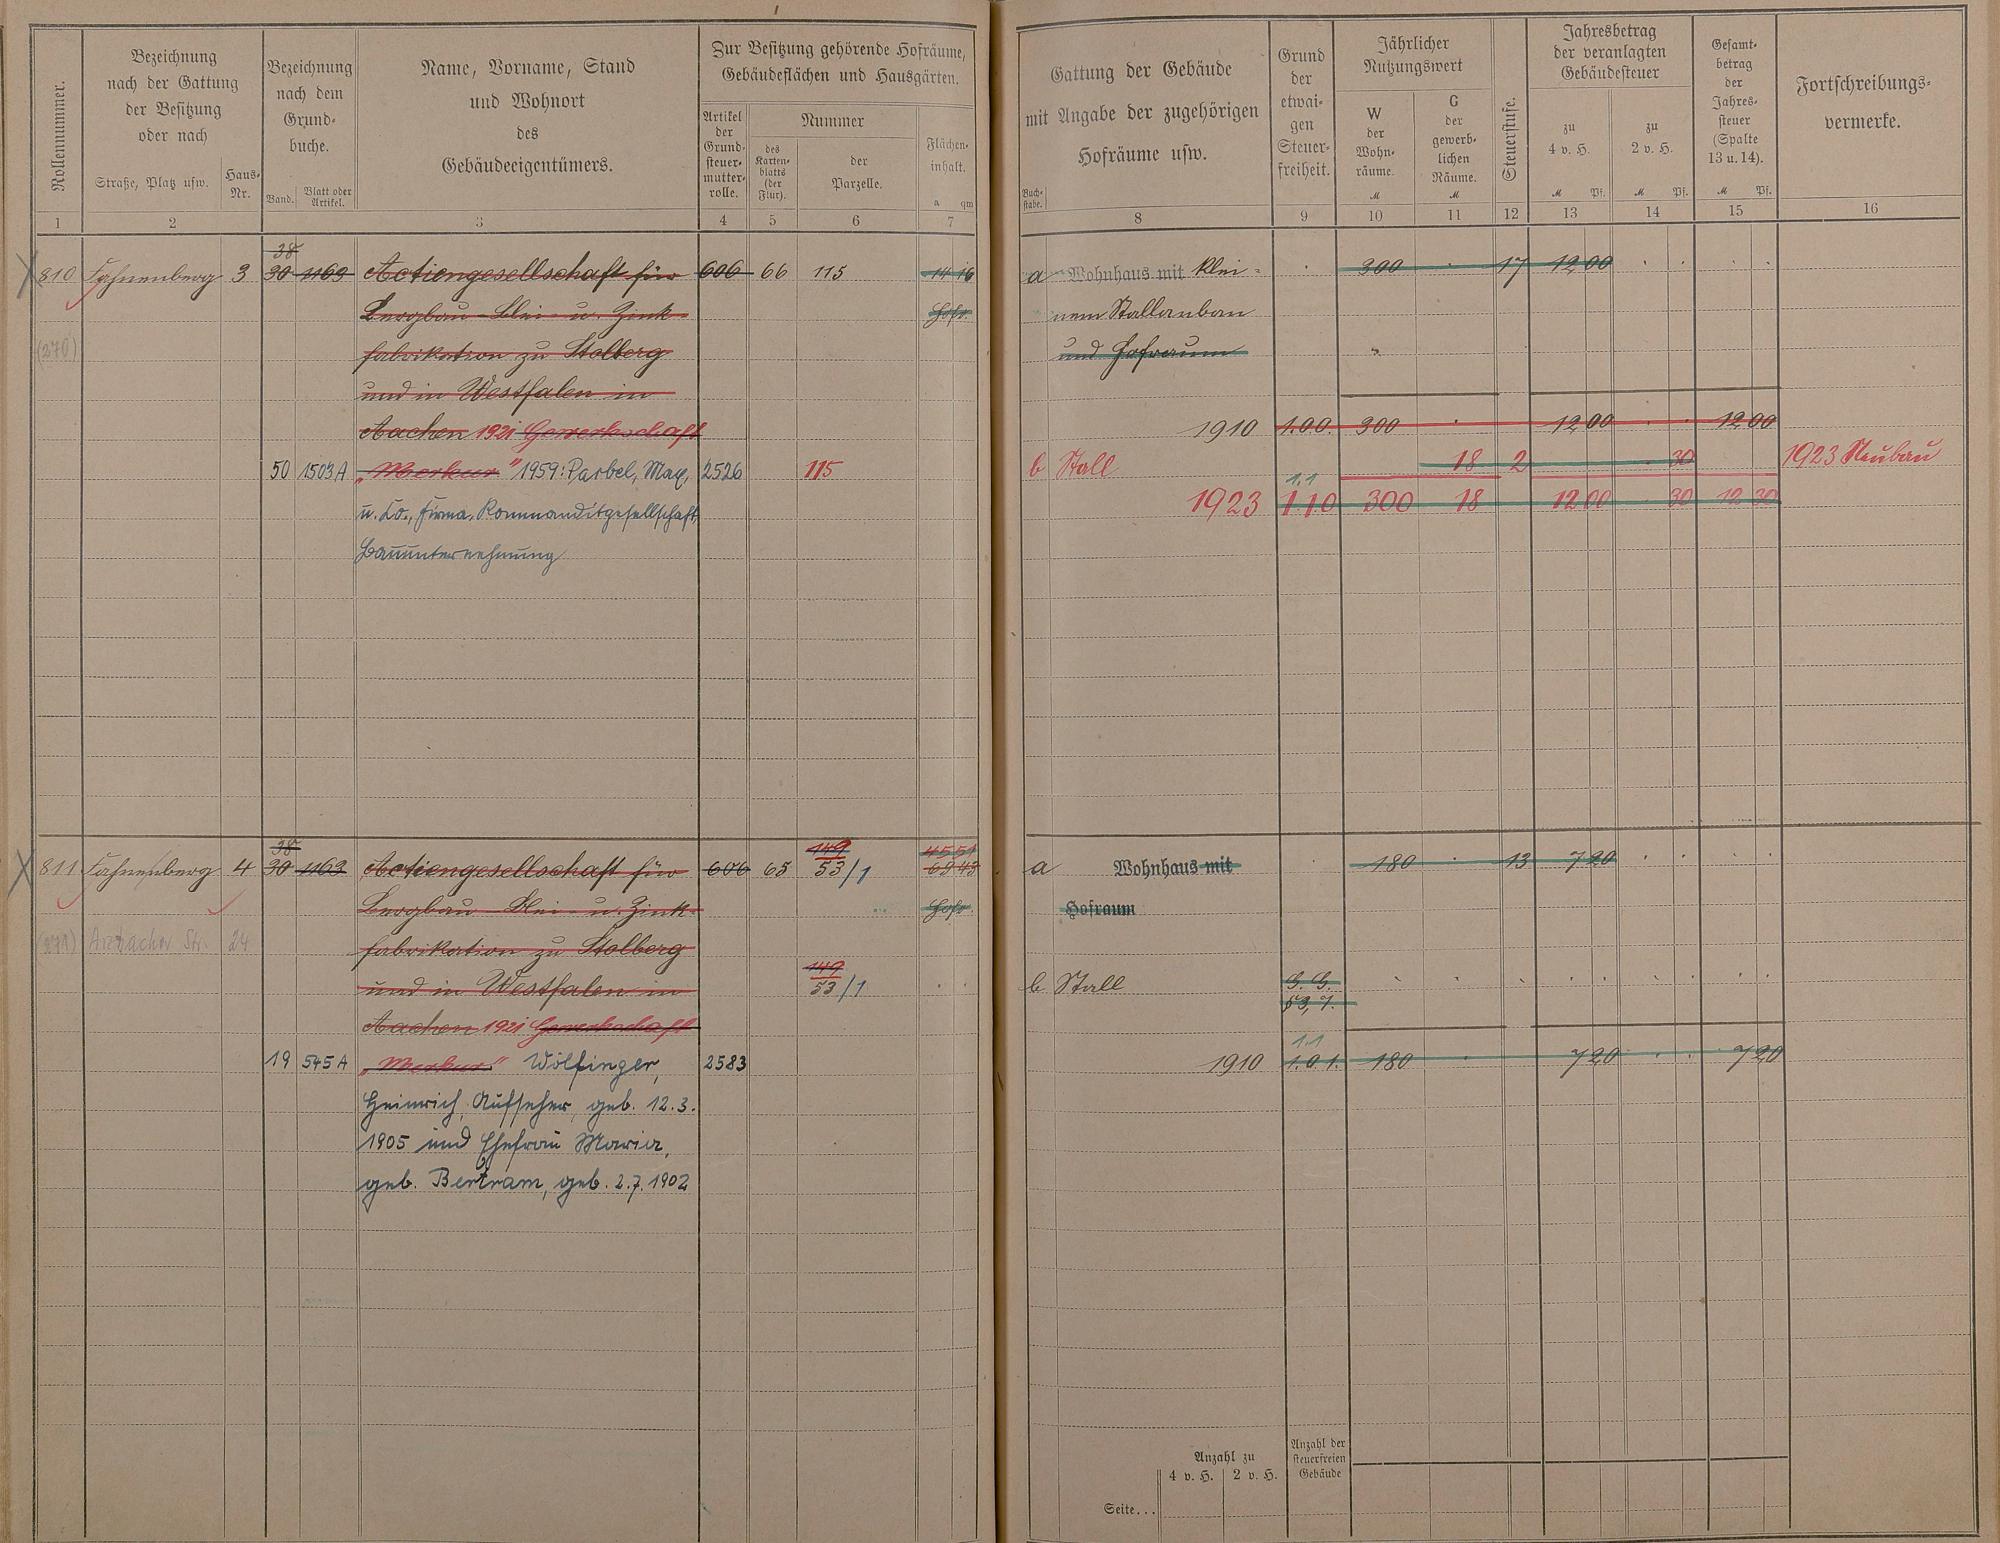 Rollennummer.
Bezeichnung
nach der Gattung
der Besitzung
oder nach
Straße, Platz usw.
Haus-
Nr.
Bezeichnung
nach dem
Grund-
buche.
Band.
Blatt oder
Artikel.
Name, Vorname, Stand
und Wohnort
des
Gebäudeeigentümers.
Zur Besitzung gehörende Hofräume,
Gebäudeflächen und Hausgärten.
Artikel
der
Grund-
steuer-
mutter-
rolle.
Nummer
des
Karten-
blatts
(der
Flur).
der
Parzelle.
Flächen-
inhalt.
a qm
1 2 3 4 5 6 7
38
810 Fahnenberg 3 30 1163 Actiengesellschaft für 606 66 115 14 16
Bergbau- Blei- u. Zink- Hofr.
(270) fabrikation zu Stolberg
und in Westfalen in
Aachen 1921 Gewerkschaft
50 1503A „Merkur" 1959: Parbel, Max, 2526 115
u. Co., Firma, Kommanditgesellschaft,
Bauunternehmung
38 149 45 51
811 Fahnenberg 4 30 1163 Actiengesellschaft für 606 65 53/1 65 43
Bergbau- Blei- u. Zink- Hofr.
(271) Arzbacher Str. 24 fabrikation zu Stolberg
149
und in Westfalen in 53/1
Aachen 1921 Gewerkschaft
19 545A „Merkur" Wölfinger, 2583
Heinrich, Aufseher, geb. 12.3.
1905 und Ehefrau Maria,
geb. Bertram, geb. 2.7.1902
Gattung der Gebäude
mit Angabe der zugehörigen
Hofräume usw.
Buch-
stabe.
Grund
der
etwai-
gen
Steuer-
freiheit.
Jährlicher
Nutzungswert
W
der
Wohn-
räume.
M
G
der
gewerb-
lichen
Räume.
M
Steuerstufe.
Jahresbetrag
der veranlagten
Gebäudesteuer
zu
4 v. H.
M Pf.
zu
2 v. H.
M Pf.
Gesamt-
betrag
der
Jahres-
steuer
(Spalte
13 u. 14).
M Pf.
Fortschreibungs-
vermerke.
8 9 10 11 12 13 14 15 16
a Wohnhaus mit klei- 300 17 12 00
nem Stallanbau
und Hofraum
1910 1.0.0. 300 12 00 12 00
b Stall 18 2 30 1923 Neubau
1.1
1923 1 1 0 300 18 12 00 30 12 30
a Wohnhaus mit 180 13 7 20
Hofraum
b Stall G. G.
§3,7.
1.1
1910 1.0.1. 180 7 20 7 20
Anzahl zu
4 v. H. 2 v. H.
Anzahl der
steuerfreien
Gebäude
Seite...